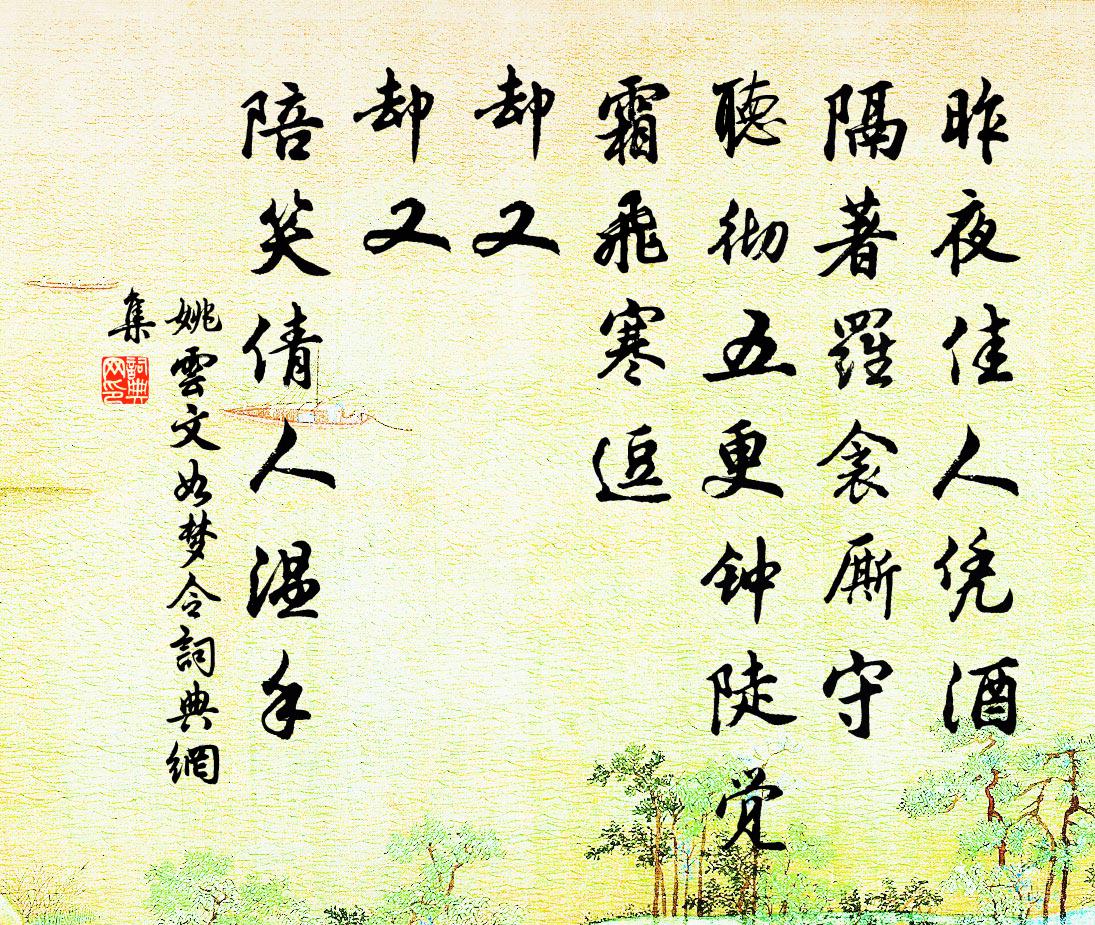 昨夜佳人凭酒
隔著羅衾厮守
聽彻五更钟陡觉
霜飛寒逗
却又
却又
陪笑倩人温手
姚雲文如梦令詞典網
集
詞典
网印